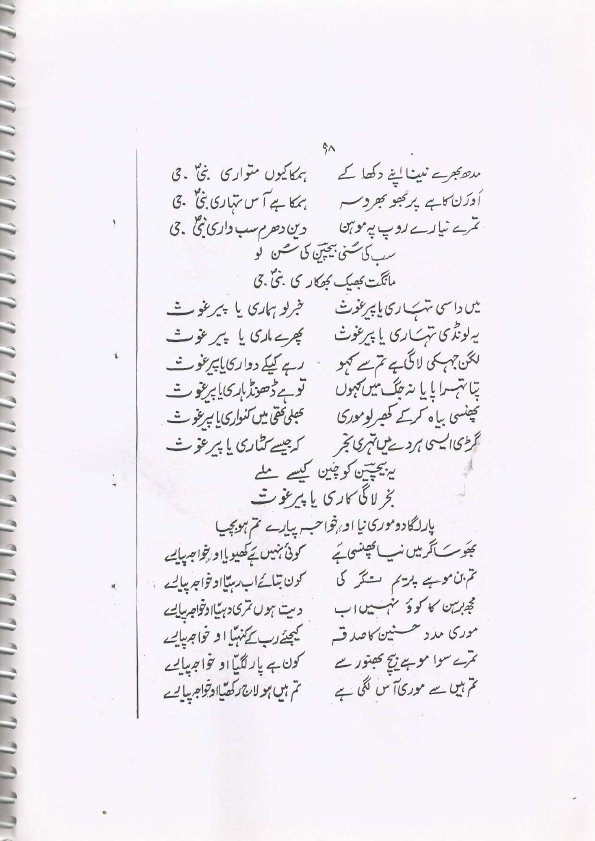 ۹۸
مدھ بھرے نینا اپنے دکھا کے ہمکا کیوں متواری بنیؐ جی
اَورَن کا ہے پر بھو بھروسہ ہمکا ہے آس تہاری بنیؐ جی
تمرے نیارے روپ پہ موہن دین دھرم سب واری بنیؐ جی
سب کی سُنی بیچینؔ کی سُن لو
مانگت بھیک بھکاری بنیؐ جی
میں داسی تہاری یا پیر غوث خبر لو ہماری یا پیر غوث
یہ لونڈی تہاری یا پیر غوث پھرے ماری یا پیر غوث
لگن جہکی لاگی ہے تم سے کہو رہے کیکے دواری یا پیر غوث
پتا تہرا پایا نہ جگ میں کہوں توہے ڈھونڈ ہاری یا پیر غوث
پھنسی بیاہ کر کے کھبر لو موری بھلی تھی میں کنواری یا پیر غوث
گڑی ایسی ہردے میں تہری نجر کہ جیسے کٹاری یا پیر غوث
یہ بیچینؔ کو چین کیسے ملے
نجر لاگی کاری یا پیر غوث
پار لگا دو موری نیا او خواجہ پیارے تم ہو بچیا
بھو ساگر میں نیا پھنسی ہے کوئی نہیں ہے کھیویا او خواجہ پیارے
تم بن موہے پریم نگر کی کون بتائے اب رہیّا او خواجہ پیارے
مجھ برہن کا کوؤ نہیں اب دیت ہوں تمری دہیّا او خواجہ پیارے
موری مدد حسنین کا صدقہ کیجئے رب کے کنہیّا او خواجہ پیارے
تمرے سوا موہے بیچ بھنور سے کون ہے پار لگیّا او خواجہ پیارے
تم ہیں سے موری آس لگی ہے تم ہیں ہو لاج رکھیّا او خواجہ پیارے